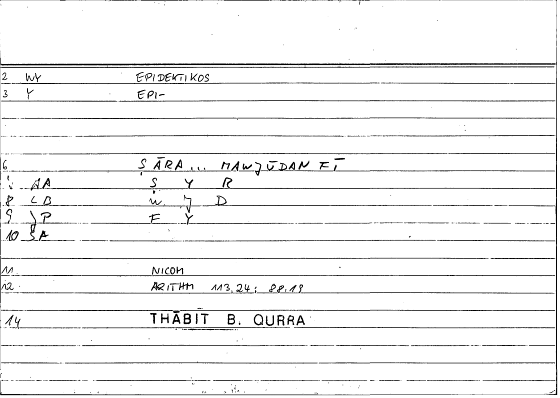 2 WY EPIDEKTIKOS
3 Y EPI-
6 ṢĀRA... MAWJŪDAN FĪ
AA Ṣ Y R
8 LB W J D
9 JP F Y
10 SA
11 NICOM
12 ARITHM 113.24; 88.19
14 THĀBIT B. QURRA